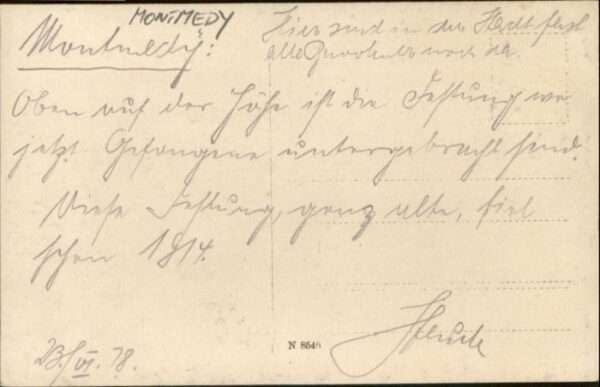 MONTMEDY
Montmedÿ:
Hier sind in der Stadt fast
alle Einwohner noch da.
Oben auf der Höhe ist die Festung wo
jetzt Gefangene untergebracht sind.
Diese Festung, ganz alte, fiel
schon 1914.
23./VI. 18.
N 8648